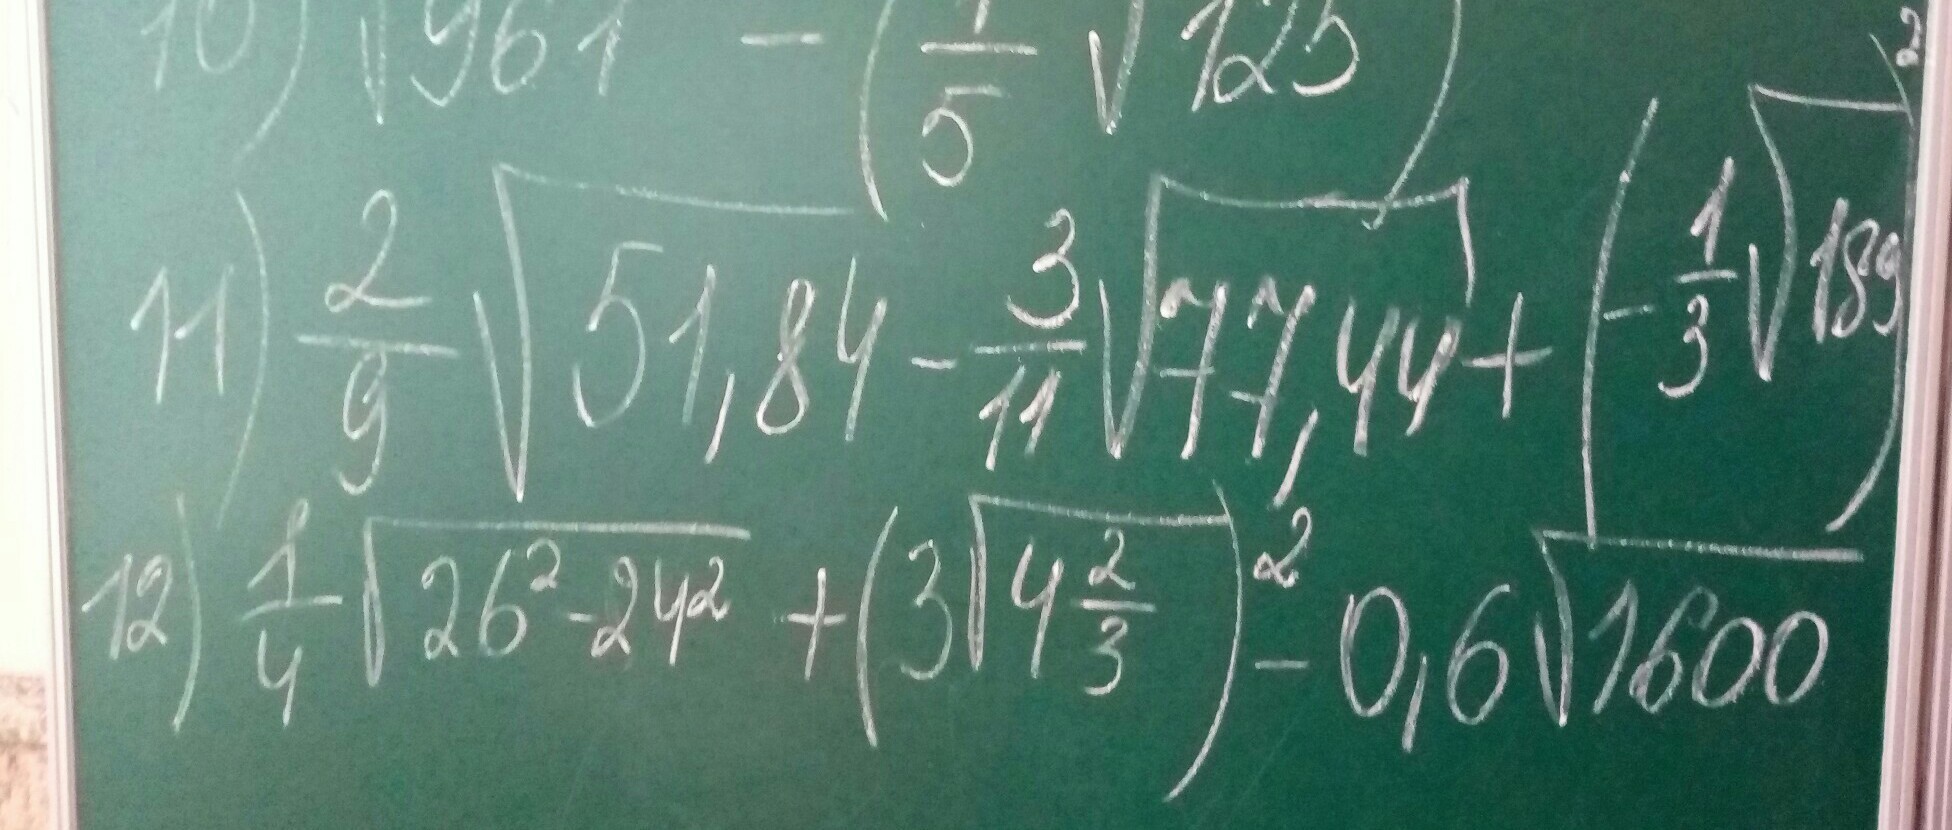 10) √961 - (1/5 √125)
11) 2/9 √51,84 - 3/11 √77,44 + (-1/3 √189)²
12) 1/4 √26²-24² + (3√4 2/3)² - 0,6√1600